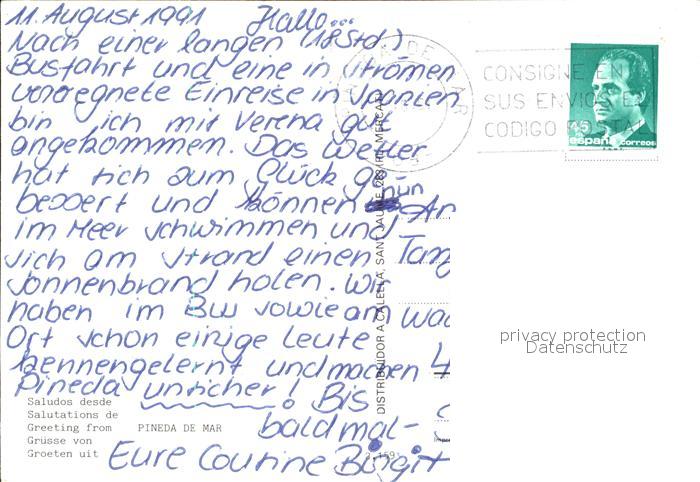 11. August 1991 Hallo...
Nach einer langen (18Std.)
Busfahrt und eine in Strömen
verregnete Einreise in Spanien
bin ich mit Verena gut
angekommen. Das Wetter
hat sich zum Glück ge-
bessert und können nun
im Meer schwimmen und
sich am Strand einen
Sonnenbrand holen. Wir
haben im Bus sowie am
Ort schon einige Leute
kennengelernt und machen
Pineda unsicher! Bis
bald mal-
Eure Cousine Birgit
Saludos desde
Salutations de
Greeting from PINEDA DE MAR
Grüsse von
Groeten uit
DISTRIBUIDOR A CALELLA, SANT JAUME, MERCAT
CONSIGNE EN
SUS ENVIOS EL
CODIGO POSTAL
45
españa correos
privacy protection
Datenschutz